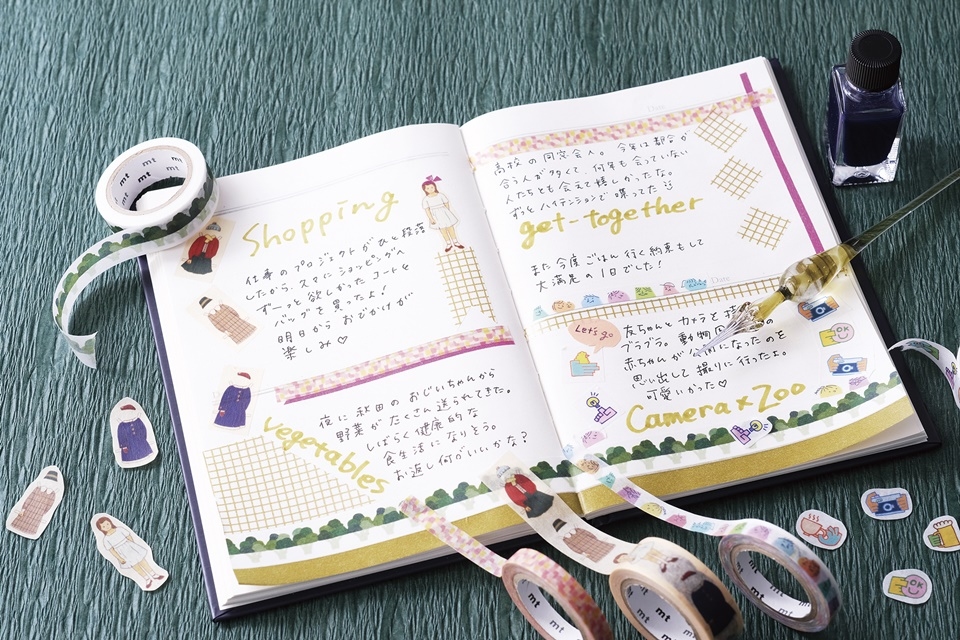 Shopping
仕事のプロジェクトがひと段落
したから、スマにショッピングへ
ずーっと欲しかったコートと
バッグを買ったよ!
明日からおでかけが
楽しみ♡
夜に秋田のおじいちゃんから
野菜がたくさん送られてきた。
しばらく健康的な
食生活になりそう。
お返し何がいいかな?
vegetables
Date
高校の同窓会へ。今年は都合が
合う人が多くて、何年も会っていない
人たちとも会えて嬉しかったな。
ずっとハイテンションで喋ってた
get-together
また今度ごはん行く約束もして
大満足の1日でした!
Date
Let's go
友ちゃんとカメラと
ブラブラ。動物園の
赤ちゃんが になったのを
思い出して撮りに行ったよ。
可愛いかった♡
Camera x Zoo
OK
mt mt mt
mt mt
mt
mt
mt
OK